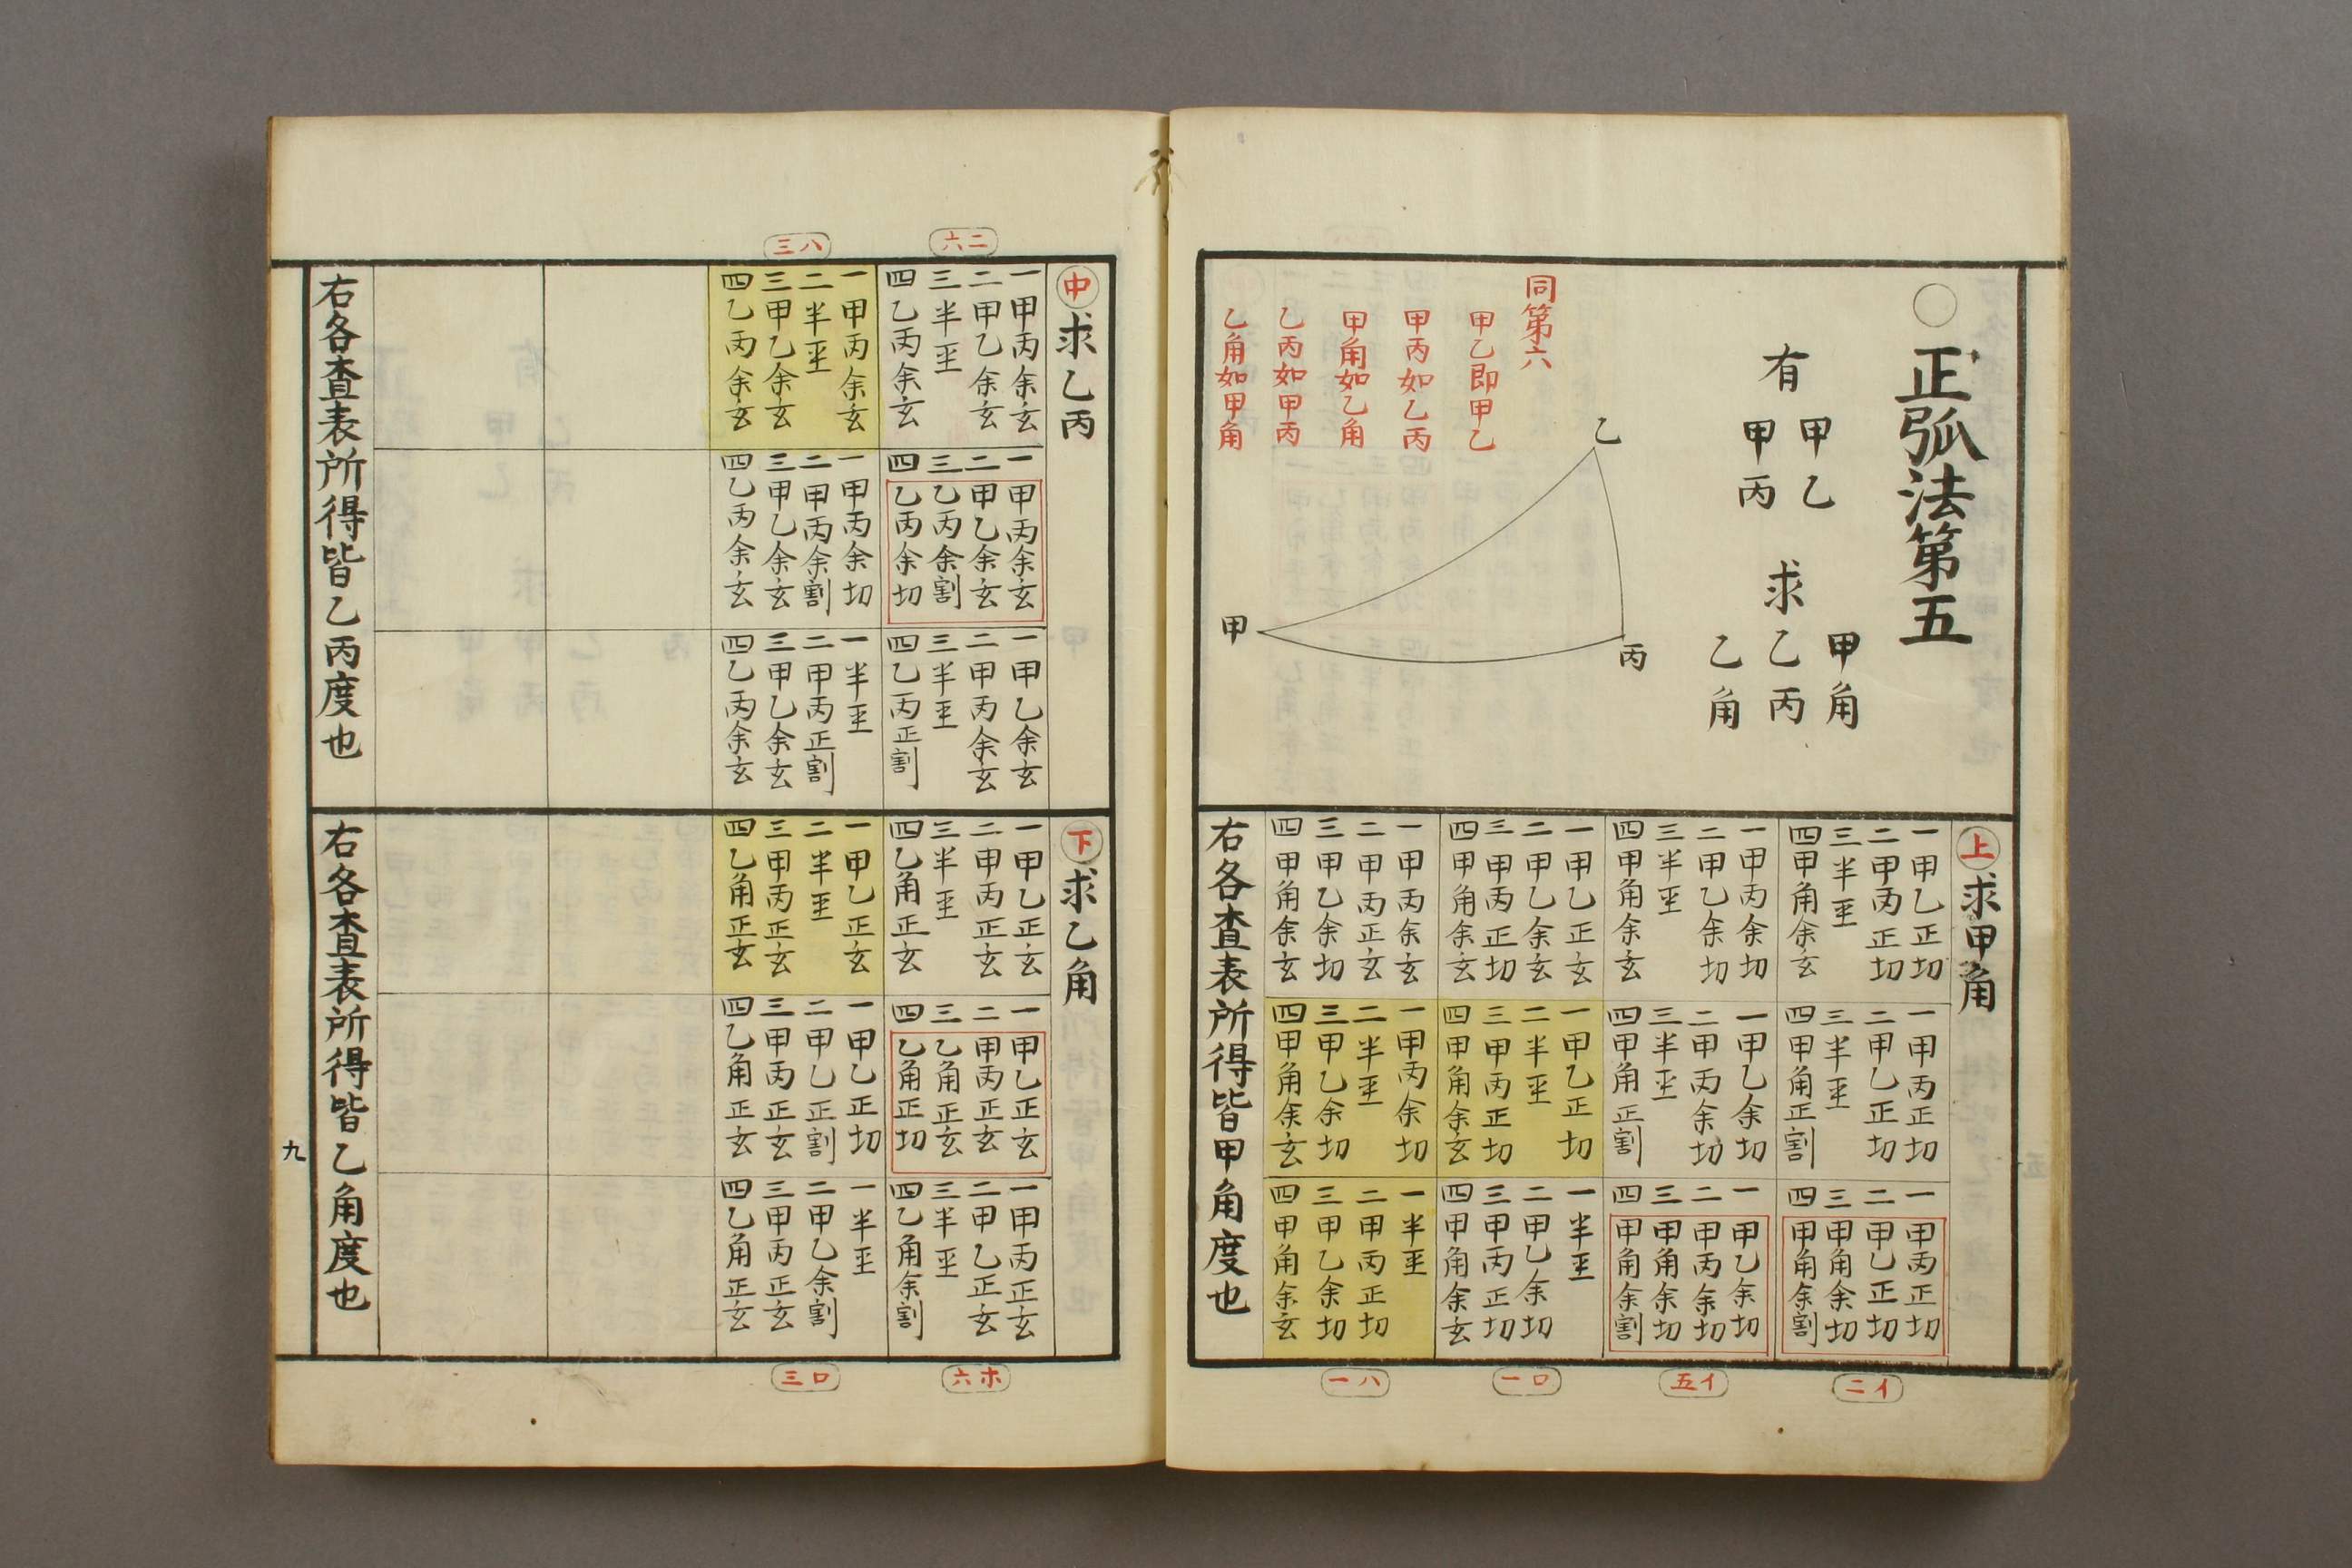 〇正弧法第五
有
甲乙
甲丙
求
甲角
乙丙
乙角
同第六
甲乙即甲乙
甲丙如乙丙
甲角如乙角
乙丙如甲丙
乙角如甲角
乙
丙
甲
上求甲角
一甲乙正切
二甲丙正切
三半坙
四甲角余玄
一甲丙正切
二甲乙正切
三半坙
四甲角正割
一甲丙正切
二甲乙正切
三甲角余切
四甲角余割
イ二
一甲丙余切
二甲乙余切
三半坙
四甲角余玄
一甲乙余切
二甲丙余切
三半坙
四甲角正割
一甲乙余切
二甲丙余切
三甲角余切
四甲角余割
イ五
一甲乙正玄
二甲乙余玄
三甲丙正切
四甲角余玄
一甲乙正切
二半坙
三甲丙正切
四甲角余玄
一半坙
二甲乙余切
三甲丙正切
四甲角余玄
ロ一
一甲丙余玄
二甲丙正玄
三甲乙余切
四甲角余玄
一甲丙余切
二半坙
三甲乙余切
四甲角余玄
一半坙
二甲丙正切
三甲乙余切
四甲角余玄
ハ一
右各査表所得皆甲角度也
中求乙丙
ニ六
一甲丙余玄
二甲乙余玄
三半坙
四乙丙余玄
一甲丙余玄
二甲乙余玄
三乙丙余割
四乙丙余切
一甲乙余玄
二甲丙余玄
三半坙
四乙丙正割
ハ三
一甲丙余玄
二半坙
三甲乙余玄
四乙丙余玄
一甲丙余切
二甲丙余割
三甲乙余玄
四乙丙余玄
一半坙
二甲丙正割
三甲乙余玄
四乙丙余玄
右各査表所得皆乙丙度也
下求乙角
一甲乙正玄
二甲丙正玄
三半坙
四乙角正玄
一甲乙正玄
二甲丙正玄
三乙角正玄
四乙角正切
一甲丙正玄
二甲乙正玄
三半坙
四乙角余割
ホ六
一甲乙正玄
二半坙
三甲丙正玄
四乙角正玄
一甲乙正切
二甲乙正割
三甲丙正玄
四乙角正玄
一半坙
二甲乙余割
三甲丙正玄
四乙角正玄
ロ三
右各査表所得皆乙角度也
九